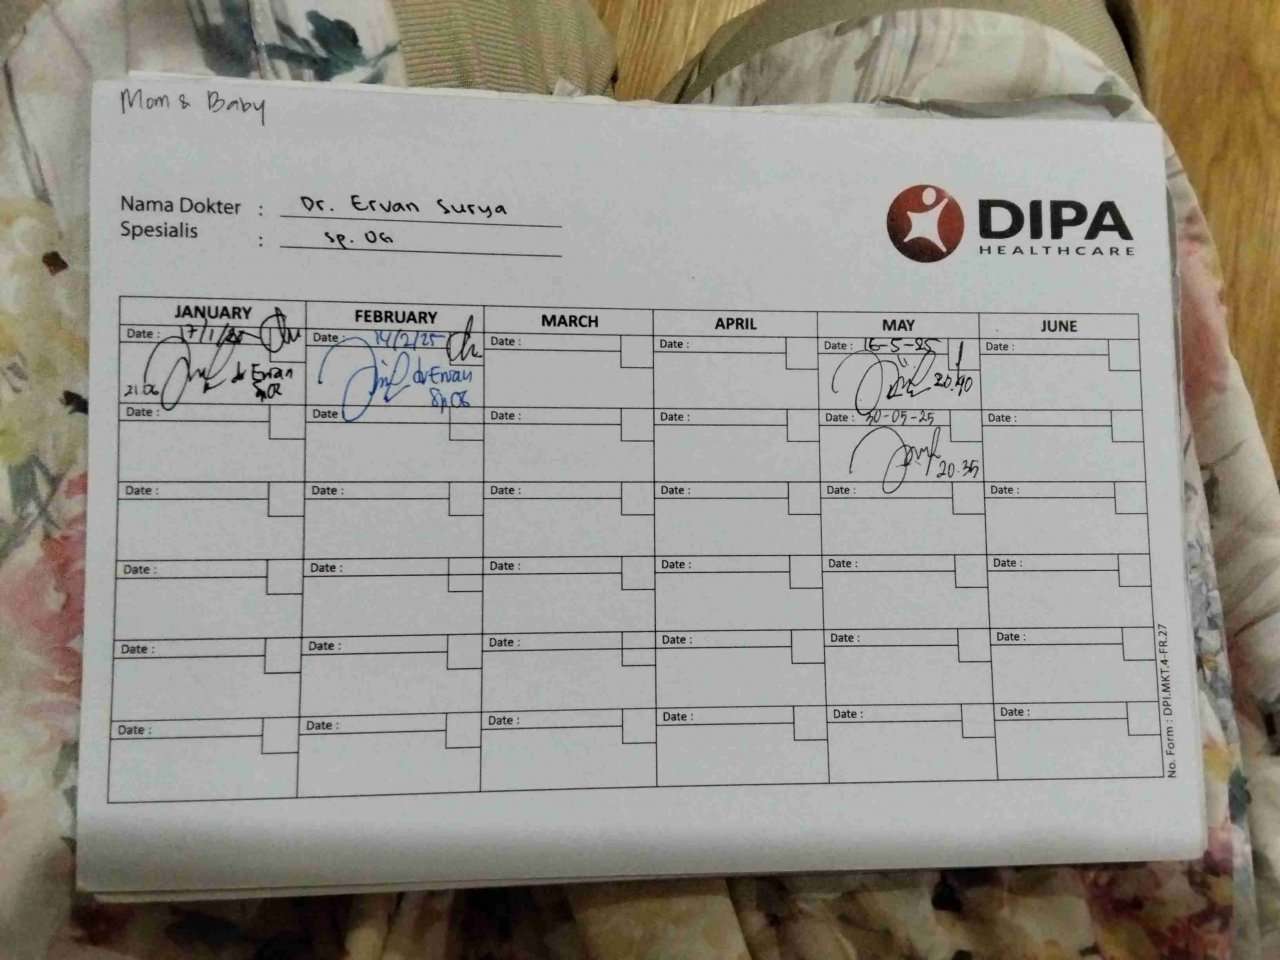 Mom & Baby
Nama Dokter : Dr. Ervan Surya
Spesialis : Sp. OG
DIPA
HEALTHCARE
JANUARY FEBRUARY MARCH APRIL MAY JUNE
Date : 17/1/25 Date : 14/2/25 Date : Date : Date : 16-5-25 Date :
21.06 dr Ervan SpOG dr Ervan SpOG 20.40
Date : Date : Date : Date : Date : 30-05-25 Date :
20.35
Date : Date : Date : Date : Date : Date :
Date : Date : Date : Date : Date : Date :
Date : Date : Date : Date : Date : Date :
Date : Date : Date : Date : Date : Date :
No. Form : DPI.MKT.4-FR.27